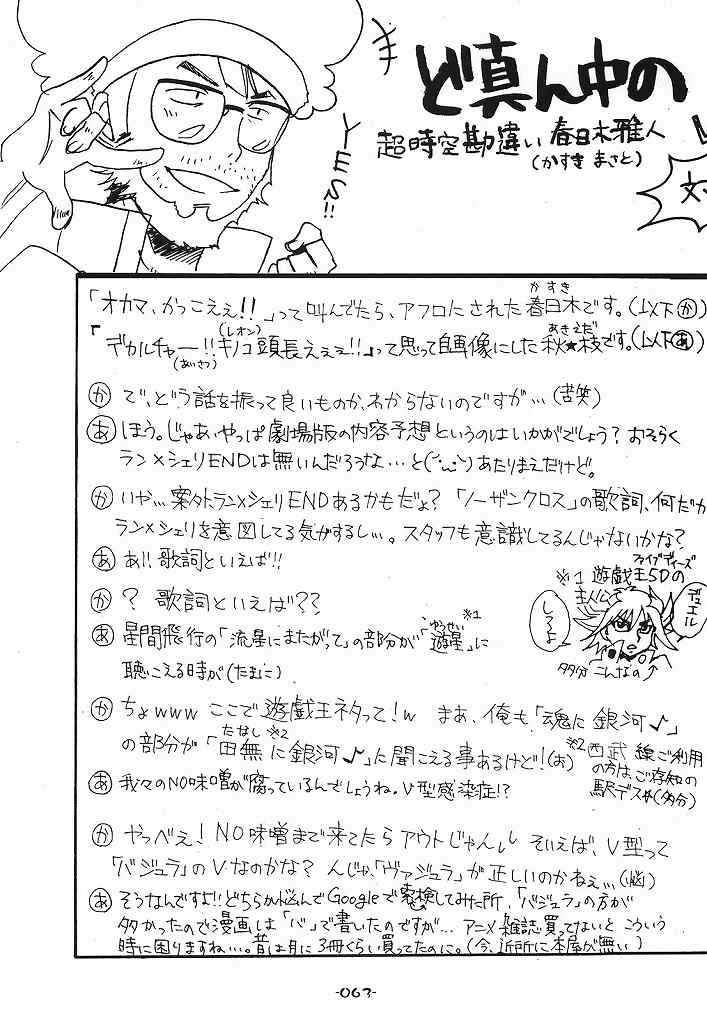 ど真ん中の
超時空勘違い 春日木雅人
(かすき まさと)
YES!!
「オカマ、かっこえぇ!!」って叫んでたら、アフロにされた春日木です。(以下か)
かすき
「デカルチャー!!キノコ頭長えぇぇ!!」って思って自画像にした秋★枝です。(以下あ)
(あいさつ)
(レオン)
あきえだ
か で、どう話を振って良いものか、わからないのですが…(苦笑)
あ ほう。じゃあ、やっぱ劇場版の内容予想というのはいかがでしょう?おそらく
ラン×シェリENDは無いんだろうな…と(´・ω・`)あたりまえだけど。
か いや…案外ラン×シェリENDあるかもだよ?「ノーザンクロス」の歌詞、何だか
ラン×シェリを意図してる気がするし…。スタッフも意識してるんじゃないかな?
あ あ!!歌詞といえば!!
か ? 歌詞といえば??
あ 星間飛行の「流星にまたがって」の部分が「遊星」に
ゆうせい
※1
聴こえる時が(たまに)
※1 遊戯王5Dの
ファイブディーズ
主人公
デュエル
しろよ
多分こんなの
か ちょwww ここで遊戯王ネタって!w まあ、俺も「魂に銀河♪」
の部分が「田無に銀河♪」に聞こえる事あるけど!(お)
たなし
※2
※2 西武線ご利用
の方はご存知の
駅デス(多分)
あ 我々のNO味噌が腐っているんでしょうね。V型感染症!?
か やっべえ!NO味噌まで来てたらアウトじゃんしし そいえば、V型って
「バジュラ」のVなのかな?んじゃ、「ヴァジュラ」が正しいのかねぇ…(悩)
あ そうなんですよ!!どちらか悩んでGoogleで検索してみた所、「バジュラ」の方が
多かったので漫画は「バ」で書いたのですが…アニメ雑誌買ってないとこういう
時に困りますねぃ…。昔は月に3冊くらい買ってたのに。(今、近所に本屋が無い)
-063-